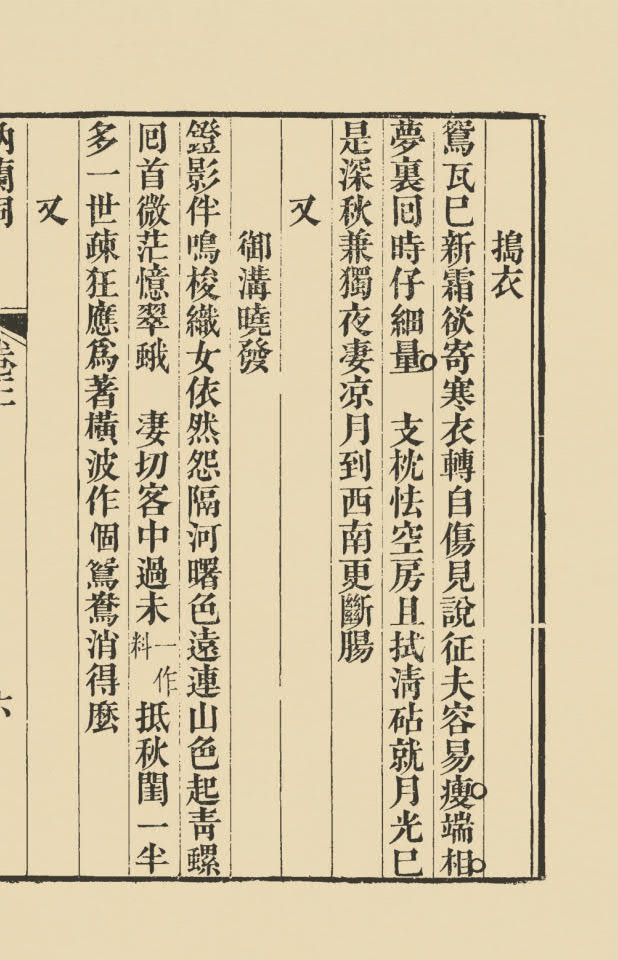 搗衣
鴛瓦已新霜欲寄寒衣轉自傷見說征夫容易瘦端相
夢裏回時仔細量　支枕怯空房且拭淸砧就月光已
是深秋兼獨夜凄凉月到西南更斷腸
又
御溝曉發
鐙影伴鳴梭織女依然怨隔河曙色遠連山色起靑螺
回首微茫憶翠蛾　凄切客中過未一作料抵秋閨一半
多一世疎狂應爲著橫波作個鴛鴦消得麼
又
納蘭詞
卷三
六